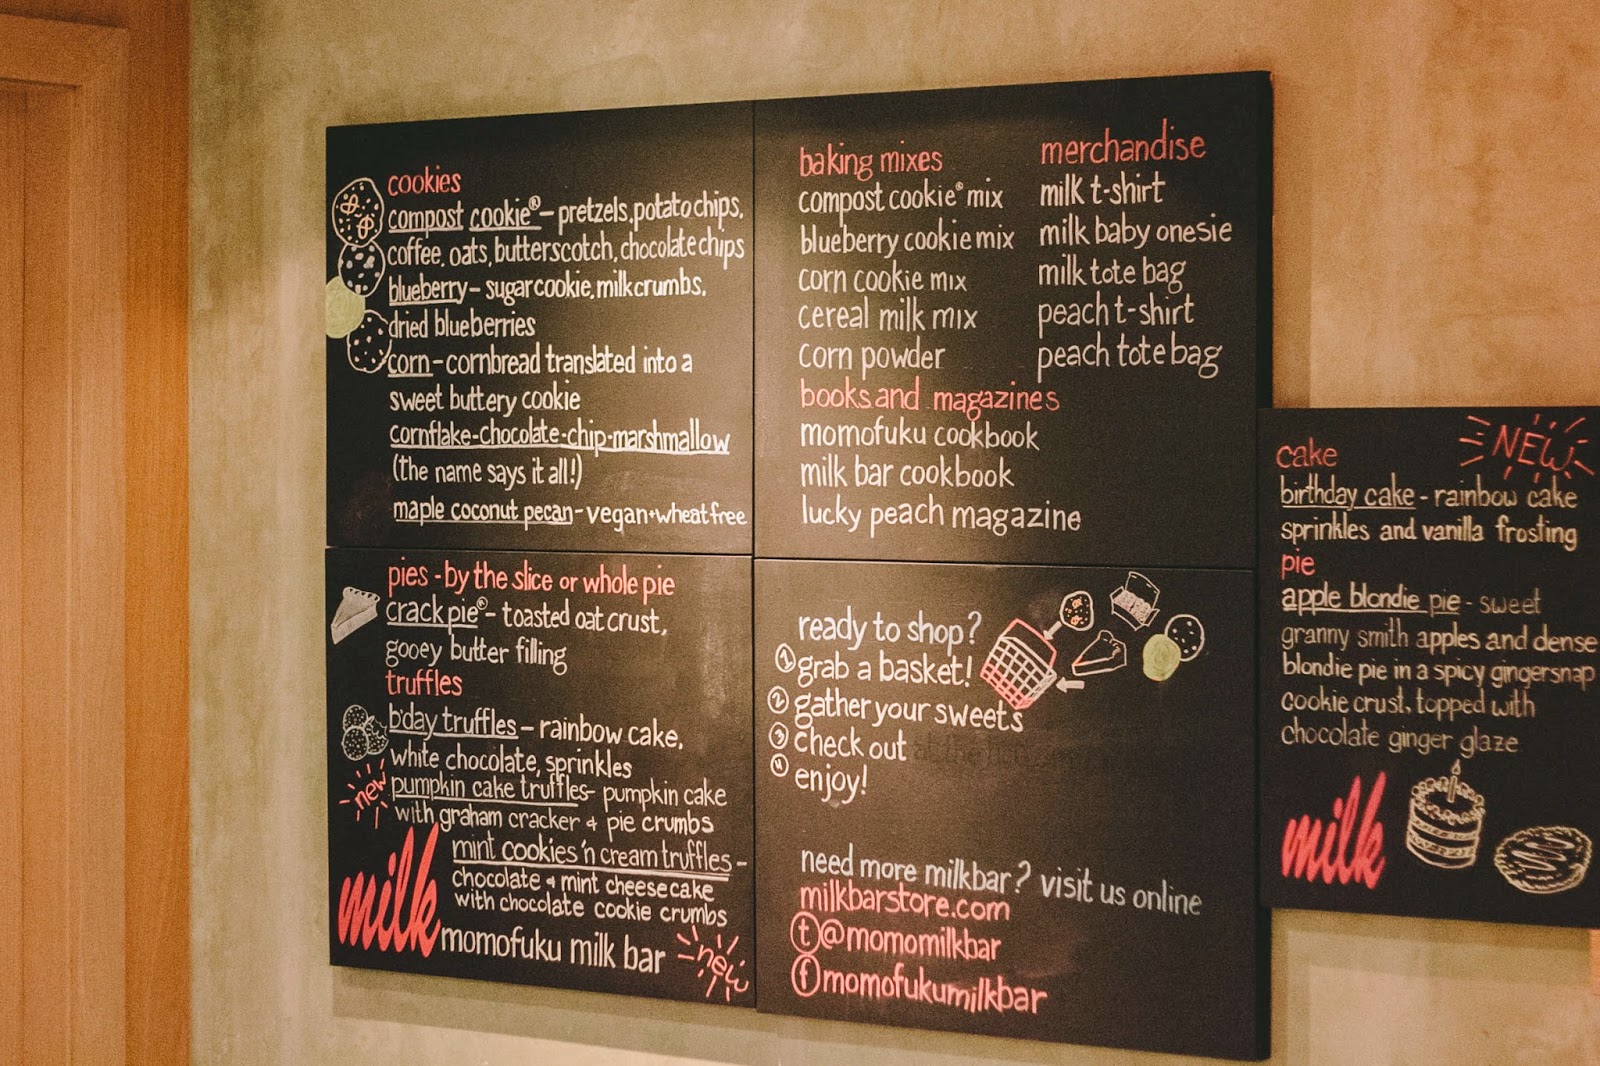 cookies
compost cookie® - pretzels, potato chips,
coffee, oats, butterscotch, chocolate chips
blueberry - sugar cookie, milk crumbs,
dried blueberries
corn - cornbread translated into a
sweet buttery cookie
cornflake-chocolate-chip-marshmallow
(the name says it all!)
maple coconut pecan - vegan + wheat free
pies - by the slice or whole pie
crack pie® - toasted oat crust,
gooey butter filling
truffles
b'day truffles - rainbow cake,
white chocolate, sprinkles
new
pumpkin cake truffles - pumpkin cake
with graham cracker + pie crumbs
mint cookies 'n cream truffles -
chocolate + mint cheesecake
with chocolate cookie crumbs
milk momofuku milk bar
new
baking mixes
compost cookie® mix
blueberry cookie mix
corn cookie mix
cereal milk mix
corn powder
books and magazines
momofuku cookbook
milk bar cookbook
lucky peach magazine
merchandise
milk t-shirt
milk baby onesie
milk tote bag
peach t-shirt
peach tote bag
ready to shop?
1 grab a basket!
2 gather your sweets
3 check out
4 enjoy!
need more milkbar? visit us online
milkbarstore.com
t @momomilkbar
f momofukumilkbar
NEW
cake
birthday cake - rainbow cake
sprinkles and vanilla frosting
pie
apple blondie pie - sweet
granny smith apples and dense
blondie pie in a spicy gingersnap
cookie crust, topped with
chocolate ginger glaze
milk